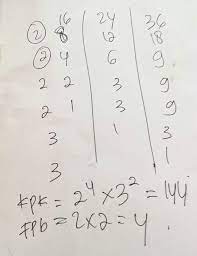 16 24 36
② 8 12 18
② 4 6 9
2 2 3 9
2 1 3 9
3 1 3
3 1
KPK = 2⁴ × 3² = 144
FPb = 2 × 2 = 4.